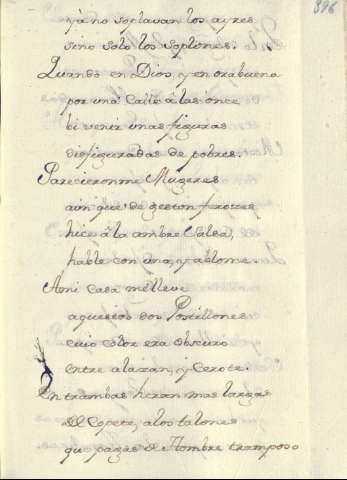 896
yà no soplavan los ayres
sino solo los soplones.
Quando en Dios, y en orabuena
por una Calle à las once
bi venir unas figuras
disfiguradas de pobres.
Parecieronme Mugeres
aun que de geston froses
hice à la ambre Salsa,
hable con una, y ablome.
A mi Casa me lleve
aquestos dos Postillones
cuio color era obscuro
entre alazan, y Cerote.
Entrambas heran mas largas
del Copete, a los talones
que pagas de Hombre tramposo